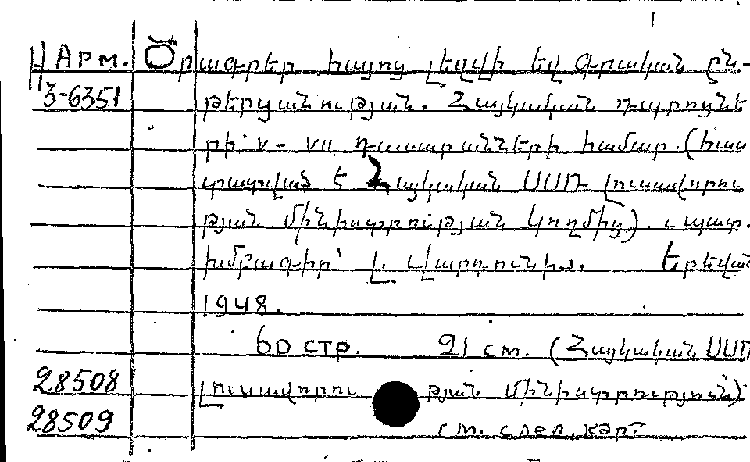 Арм. Ծրագրեր հայոց լեզվի եվ գրական ըն-
3-6351 թերցանության. Հայկական դպրոցնե
րի V - VII դասարանների համար. (հաս
տատված է Հայկական ՍՍՌ լուսավորու
թյան մինիստրության կողմից).
խմբագիր՝ Լ. Երեվան
1948.
60 стр. 21 ст. (Հայկական ՍՍՌ
28508 Լուսավորության մինիստրություն)
28509 см. след. карт